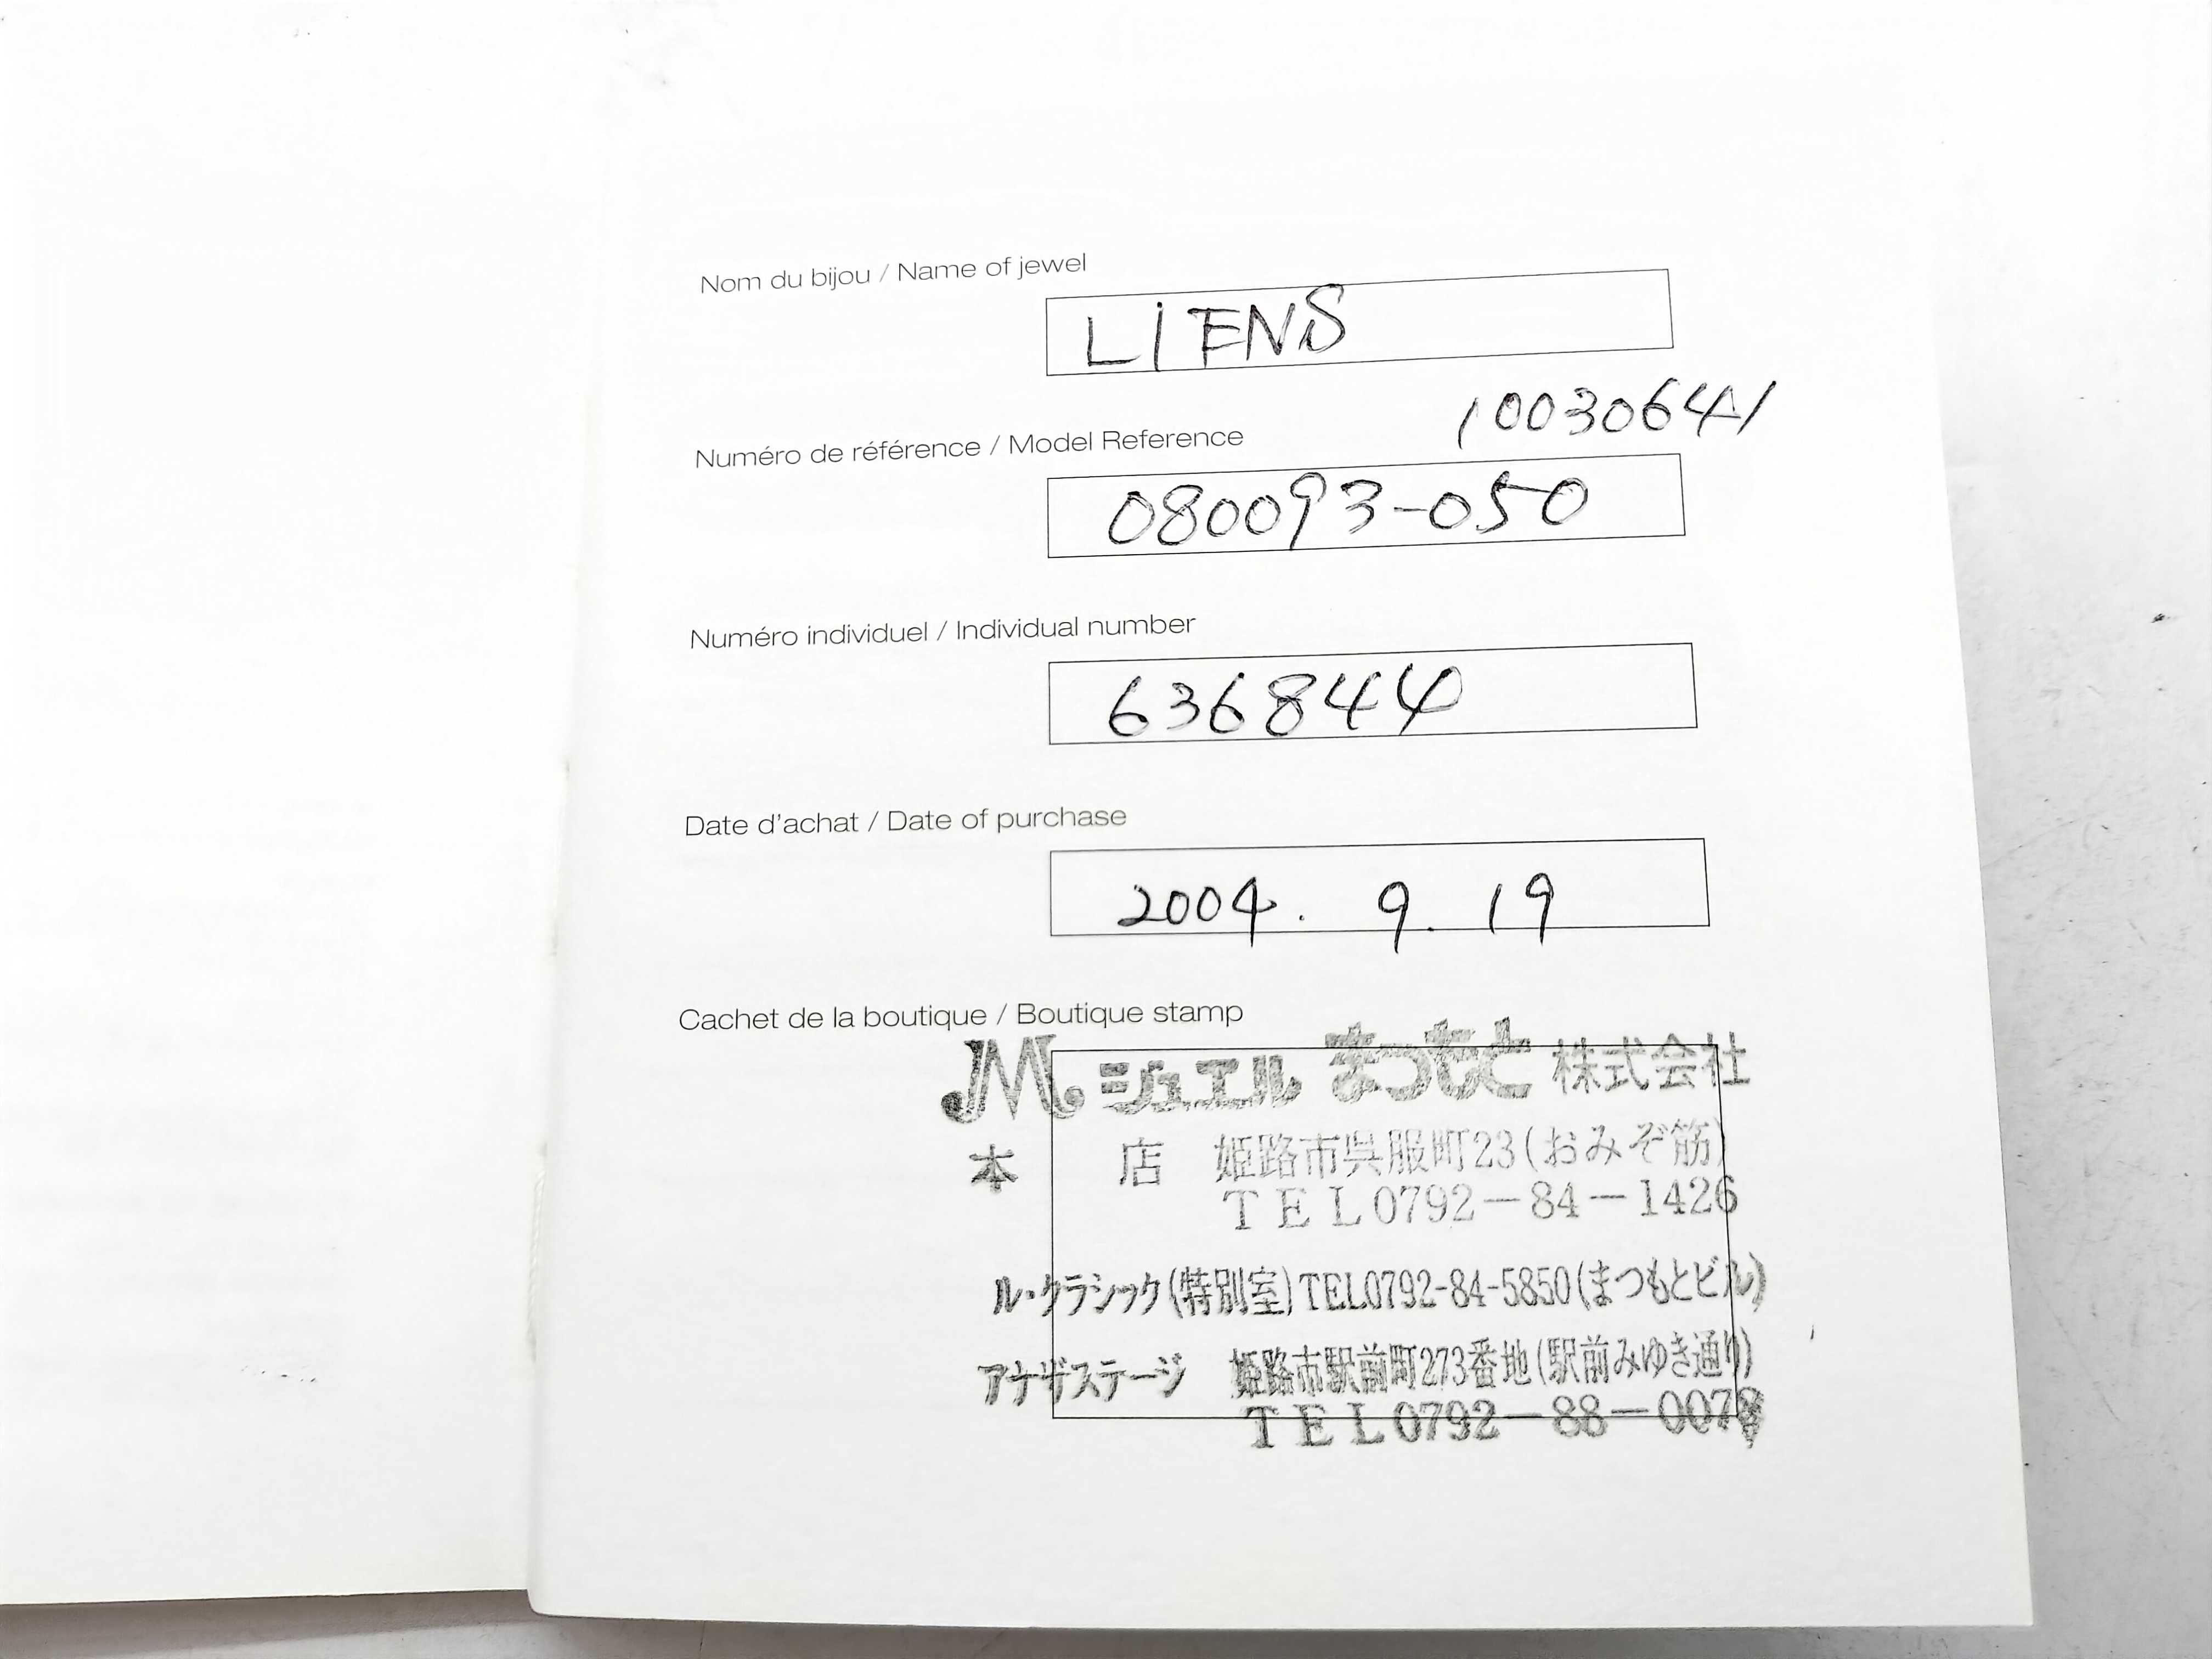 Nom du bijou / Name of jewel
LIENS
10030641
Numéro de référence / Model Reference
080093-050
Numéro individuel / Individual number
636844
Date d'achat / Date of purchase
2004. 9. 19
Cachet de la boutique / Boutique stamp
M ジュエル まつもと 株式会社
本 店 姫路市呉服町23(おみぞ筋)
TEL0792-84-1426
ル・クラシック(特別室)TEL0792-84-5850(まつもとビル)
アナザステージ 姫路市駅前町273番地(駅前みゆき通り)
TEL0792-88-0078